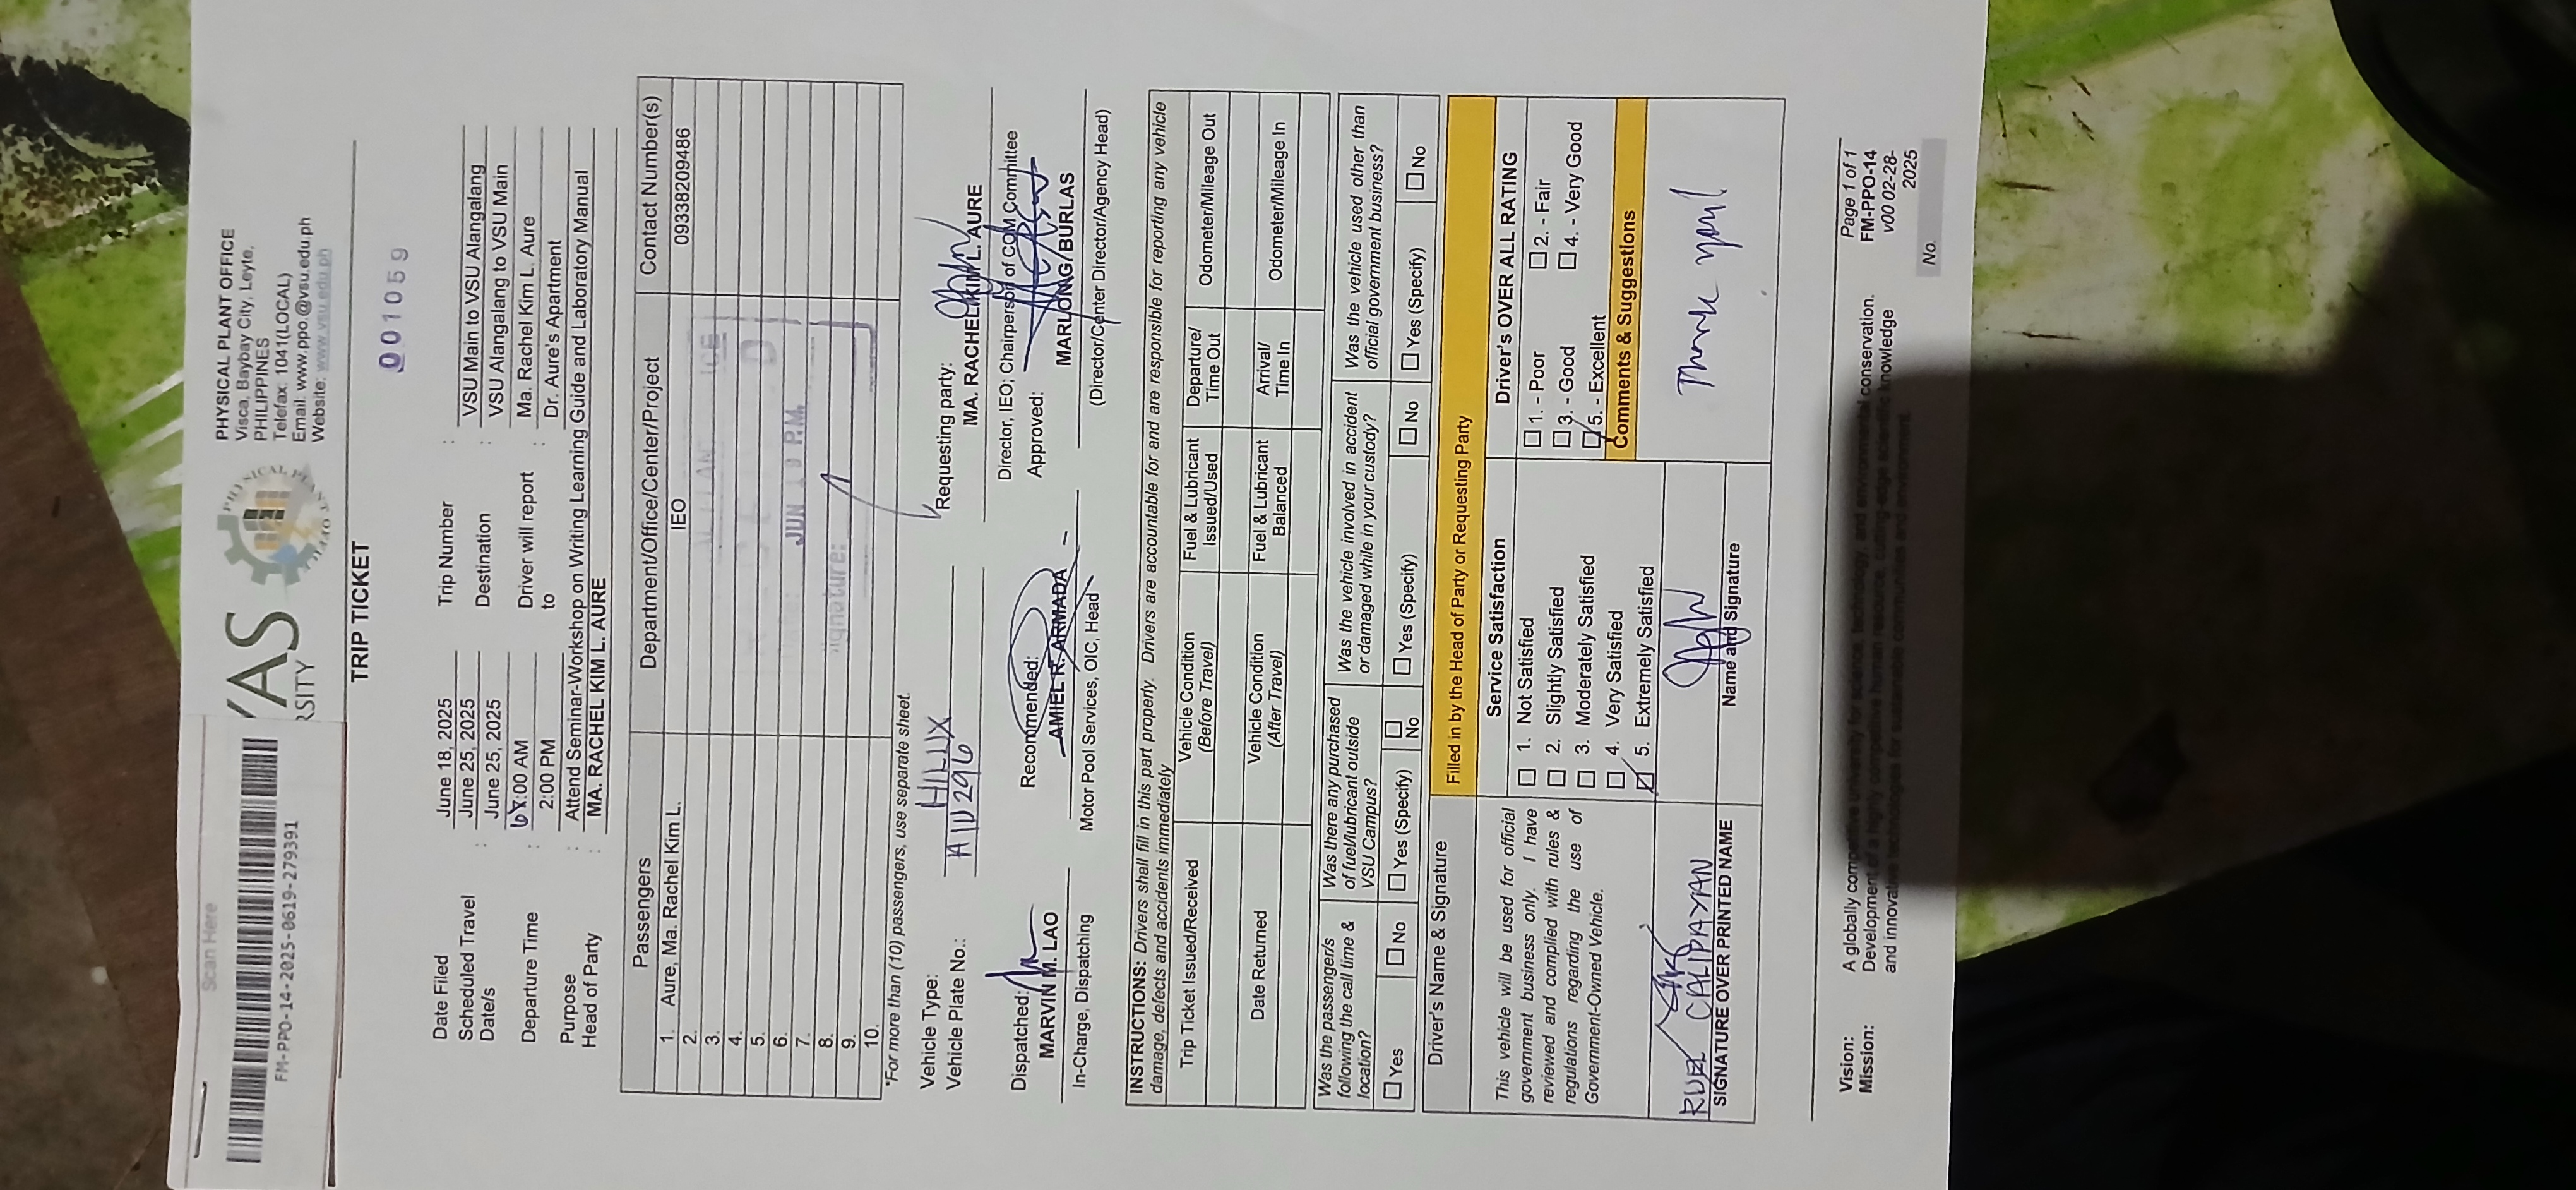 Scan Here
FM-PPO-14-2025-0619-279391
YAS
RSITY
PHYSICAL PLANT OFFICE
Visca, Baybay City, Leyte,
PHILIPPINES
Telefax: 1041(LOCAL)
Email: www.ppo.@vsu.edu.ph
Website: www.vsu.edu.ph
TRIP TICKET
001059
Date Filed : June 18, 2025
Scheduled Travel Date/s : June 25, 2025
June 25, 2025
Departure Time : 6:00 AM
2:00 PM
Trip Number :
Destination : VSU Main to VSU Alangalang
VSU Alangalang to VSU Main
Driver will report to : Ma. Rachel Kim L. Aure
Dr. Aure's Apartment
Purpose : Attend Seminar-Workshop on Writing Learning Guide and Laboratory Manual
Head of Party : MA. RACHEL KIM L. AURE
Passengers Department/Office/Center/Project Contact Number(s)
1. Aure, Ma. Rachel Kim L. IEO 09338209486
2.
3.
4.
5.
6.
7.
8.
9.
10.
JUN 19 P.M.
Signature:
*For more than (10) passengers, use separate sheet.
Vehicle Type: HILUX
Vehicle Plate No.: A1U 296
Requesting party:
MA. RACHEL KIM L. AURE
Director, IEO; Chairperson of COM Committee
Dispatched:
MARVIN M. LAO
In-Charge, Dispatching
Recommended:
AMIEL R. ARMADA
Motor Pool Services, OIC, Head
Approved:
MARLON G. BURLAS
(Director/Center Director/Agency Head)
INSTRUCTIONS: Drivers shall fill in this part properly. Drivers are accountable for and are responsible for reporting any vehicle
damage, defects and accidents immediately
Trip Ticket Issued/Received Vehicle Condition (Before Travel) Fuel & Lubricant Issued/Used Departure/ Time Out Odometer/Mileage Out
Date Returned Vehicle Condition (After Travel) Fuel & Lubricant Balanced Arrival/ Time In Odometer/Mileage In
Was the passenger/s following the call time & location?
Was there any purchased of fuel/lubricant outside VSU Campus?
Was the vehicle involved in accident or damaged while in your custody?
Was the vehicle used other than official/government business?
Yes No Yes (Specify) No Yes (Specify) No Yes (Specify) No
Driver's Name & Signature
Filled in by the Head of Party or Requesting Party
This vehicle will be used for official
government business only. I have
reviewed and complied with rules &
regulations regarding the use of
Government-Owned Vehicle.
Service Satisfaction
1. Not Satisfied
2. Slightly Satisfied
3. Moderately Satisfied
4. Very Satisfied
5. Extremely Satisfied
Driver's OVER ALL RATING
1. - Poor 2. - Fair
3. - Good 4. - Very Good
5. - Excellent
Comments & Suggestions
Thank you!
RUEL CALIPAYAN
SIGNATURE OVER PRINTED NAME
Name and Signature
Vision: A globally competitive university for science, technology, and environmental conservation.
Mission: Development of a highly competitive human resource, cutting-edge scientific knowledge
and innovative technologies for sustainable communities and environment.
Page 1 of 1
FM-PPO-14
v00 02-28-
2025
No.